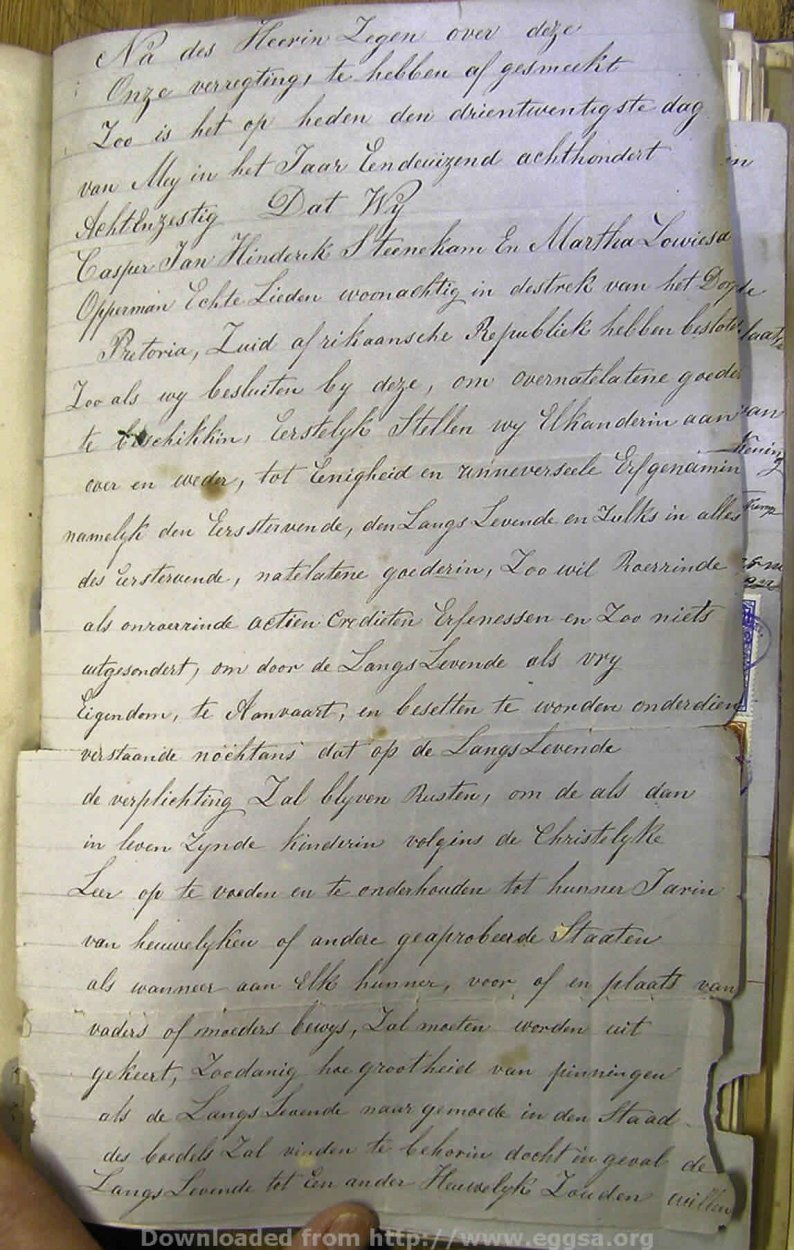 Na des Heerin Zegen over deze
Onze verregting, te hebben af gesmeekt
Zoo is het op heden den drientwentigste dag
van Mey in het Jaar Eendeuizend achthondert
AchtEnzestig Dat Wy
Casper Jan Hinderik Steenekam En Martha Lowiesa
Opperman Echte Lieden woonachtig in destrek van het Dorp
Pretoria, Zuid afrikaansche Republiek hebben beslote
Zoo als wy besluiten by deze, om overnatelatene goeder
te beschikkin, Eerstelyk Stellen wy Elkanderin aan
over en weder, tot Eenigheid en unneverseele Erfgenamin
namelyk den Eerststervende, den Langs Levende en Zulks in alles
des eerstervende, natelatene goederin, Zoo wil Roerrinde
als onroerrinde actien Credieten Erfenessen en Zoo niets
uitgesondert, om door de Langs Levende als vry
Eigendom, te Aanvaart, en besetten te worden onderdien
verstaande nochtans dat op de Langs Levende
de verplichting Zal blyven Rusten, om de als dan
in leven Zynde kinderin volgins de Christelyke
Leer op te voeden en te onderhouden tot hunner Jarin
van heuwelyken of andere geaprobeerde Staaten
als wanneer aan Elk hunner, voor of in plaats van
vaders of moeders bewys, Zal moeten worden uit
gekeert, Zoodanig hoe grootheid van pinningen
als de Langs Levende naar gemoede in den Staad
des boedels Zal vinden te behorin docht in geval de
Langs Levende tot Een ander Heuwelyk Zouden willen
Downloaded from http://www.eggsa.org